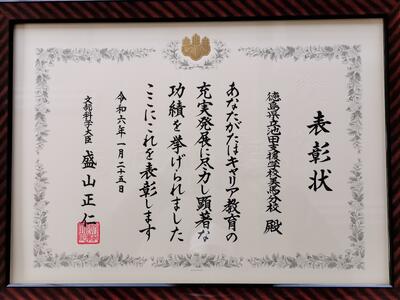 表彰状
徳島県立池田支援学校美馬分校 殿
あなたがたはキャリア教育の
充実発展に尽力し顕著な
功績を挙げられました
ここにこれを表彰します
令和六年一月二十五日
文部科学大臣 盛山正仁